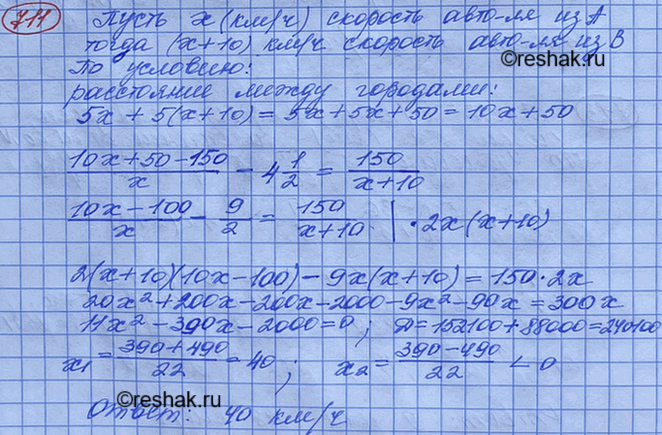 711 Пусть x (км/ч) скорость авто-ля из A
тогда (x+10) км/ч скорость авто-ля из B
©reshak.ru
По условию:
расстояние между городами:
5x + 5(x+10) = 5x+5x+50 = 10x+50
(10x+50-150)/x - 4 1/2 = 150/(x+10)
(10x-100)/x - 9/2 = 150/(x+10) | · 2x(x+10)
2(x+10)(10x-100) - 9x(x+10) = 150·2x
20x²+200x-200x-2000-9x²-90x = 300x
11x²-390x-2000=0 ; D=152100+88000=240100
x₁ = (390+490)/22 = 40 ; x₂ = (390-490)/22 < 0
©reshak.ru
Ответ: 40 км/ч